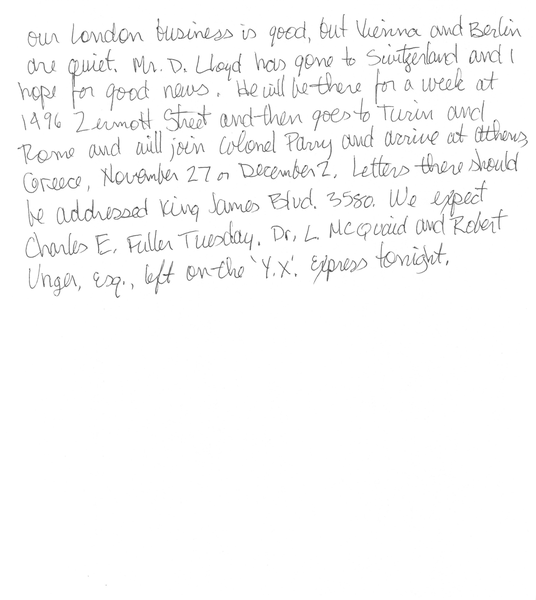 our London business is good, but Vienna and Berlin
are quiet. Mr. D. Lloyd has gone to Switzerland and I
hope for good news. He will be there for a week at
1496 Zermott Street and then goes to Turin and
Rome and will join Colonel Parry and arrive at Athens,
Greece, November 27 or December 2. Letters there should
be addressed King James Blvd. 3580. We expect
Charles E. Fuller Tuesday. Dr. L. McQuaid and Robert
Unger, Esq., left on the 'Y.X'. Express tonight.